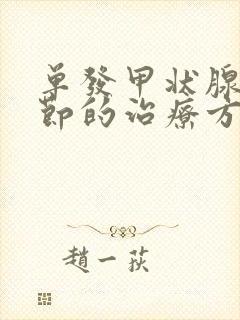 單發甲狀腺
節的治療方
趙一荻